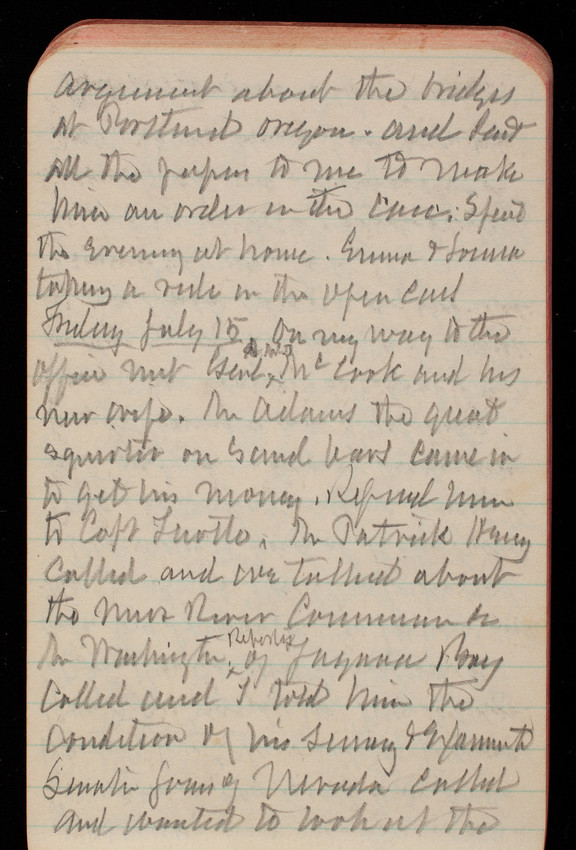 argument about the bridges
at Portland Oregon. and sent
all the papers to me to make
him an order in the case. Spent
the Evening at home. Emma &
taking a ride in the open cars
Friday July 15. On my way to the
office met Genl A. McD McCook and his
new wife. Mr Adams the great
squirter on Sand bars came in
to get his money. Refered him
to Capt Mr Patrick Henry
Called and we talked about
the Miss River Commission &c
Mr Washington, Reporter of Bay
Called and I told him the
Condition of his Survey &
Senator Jones of Nevada called
and wanted to look at the